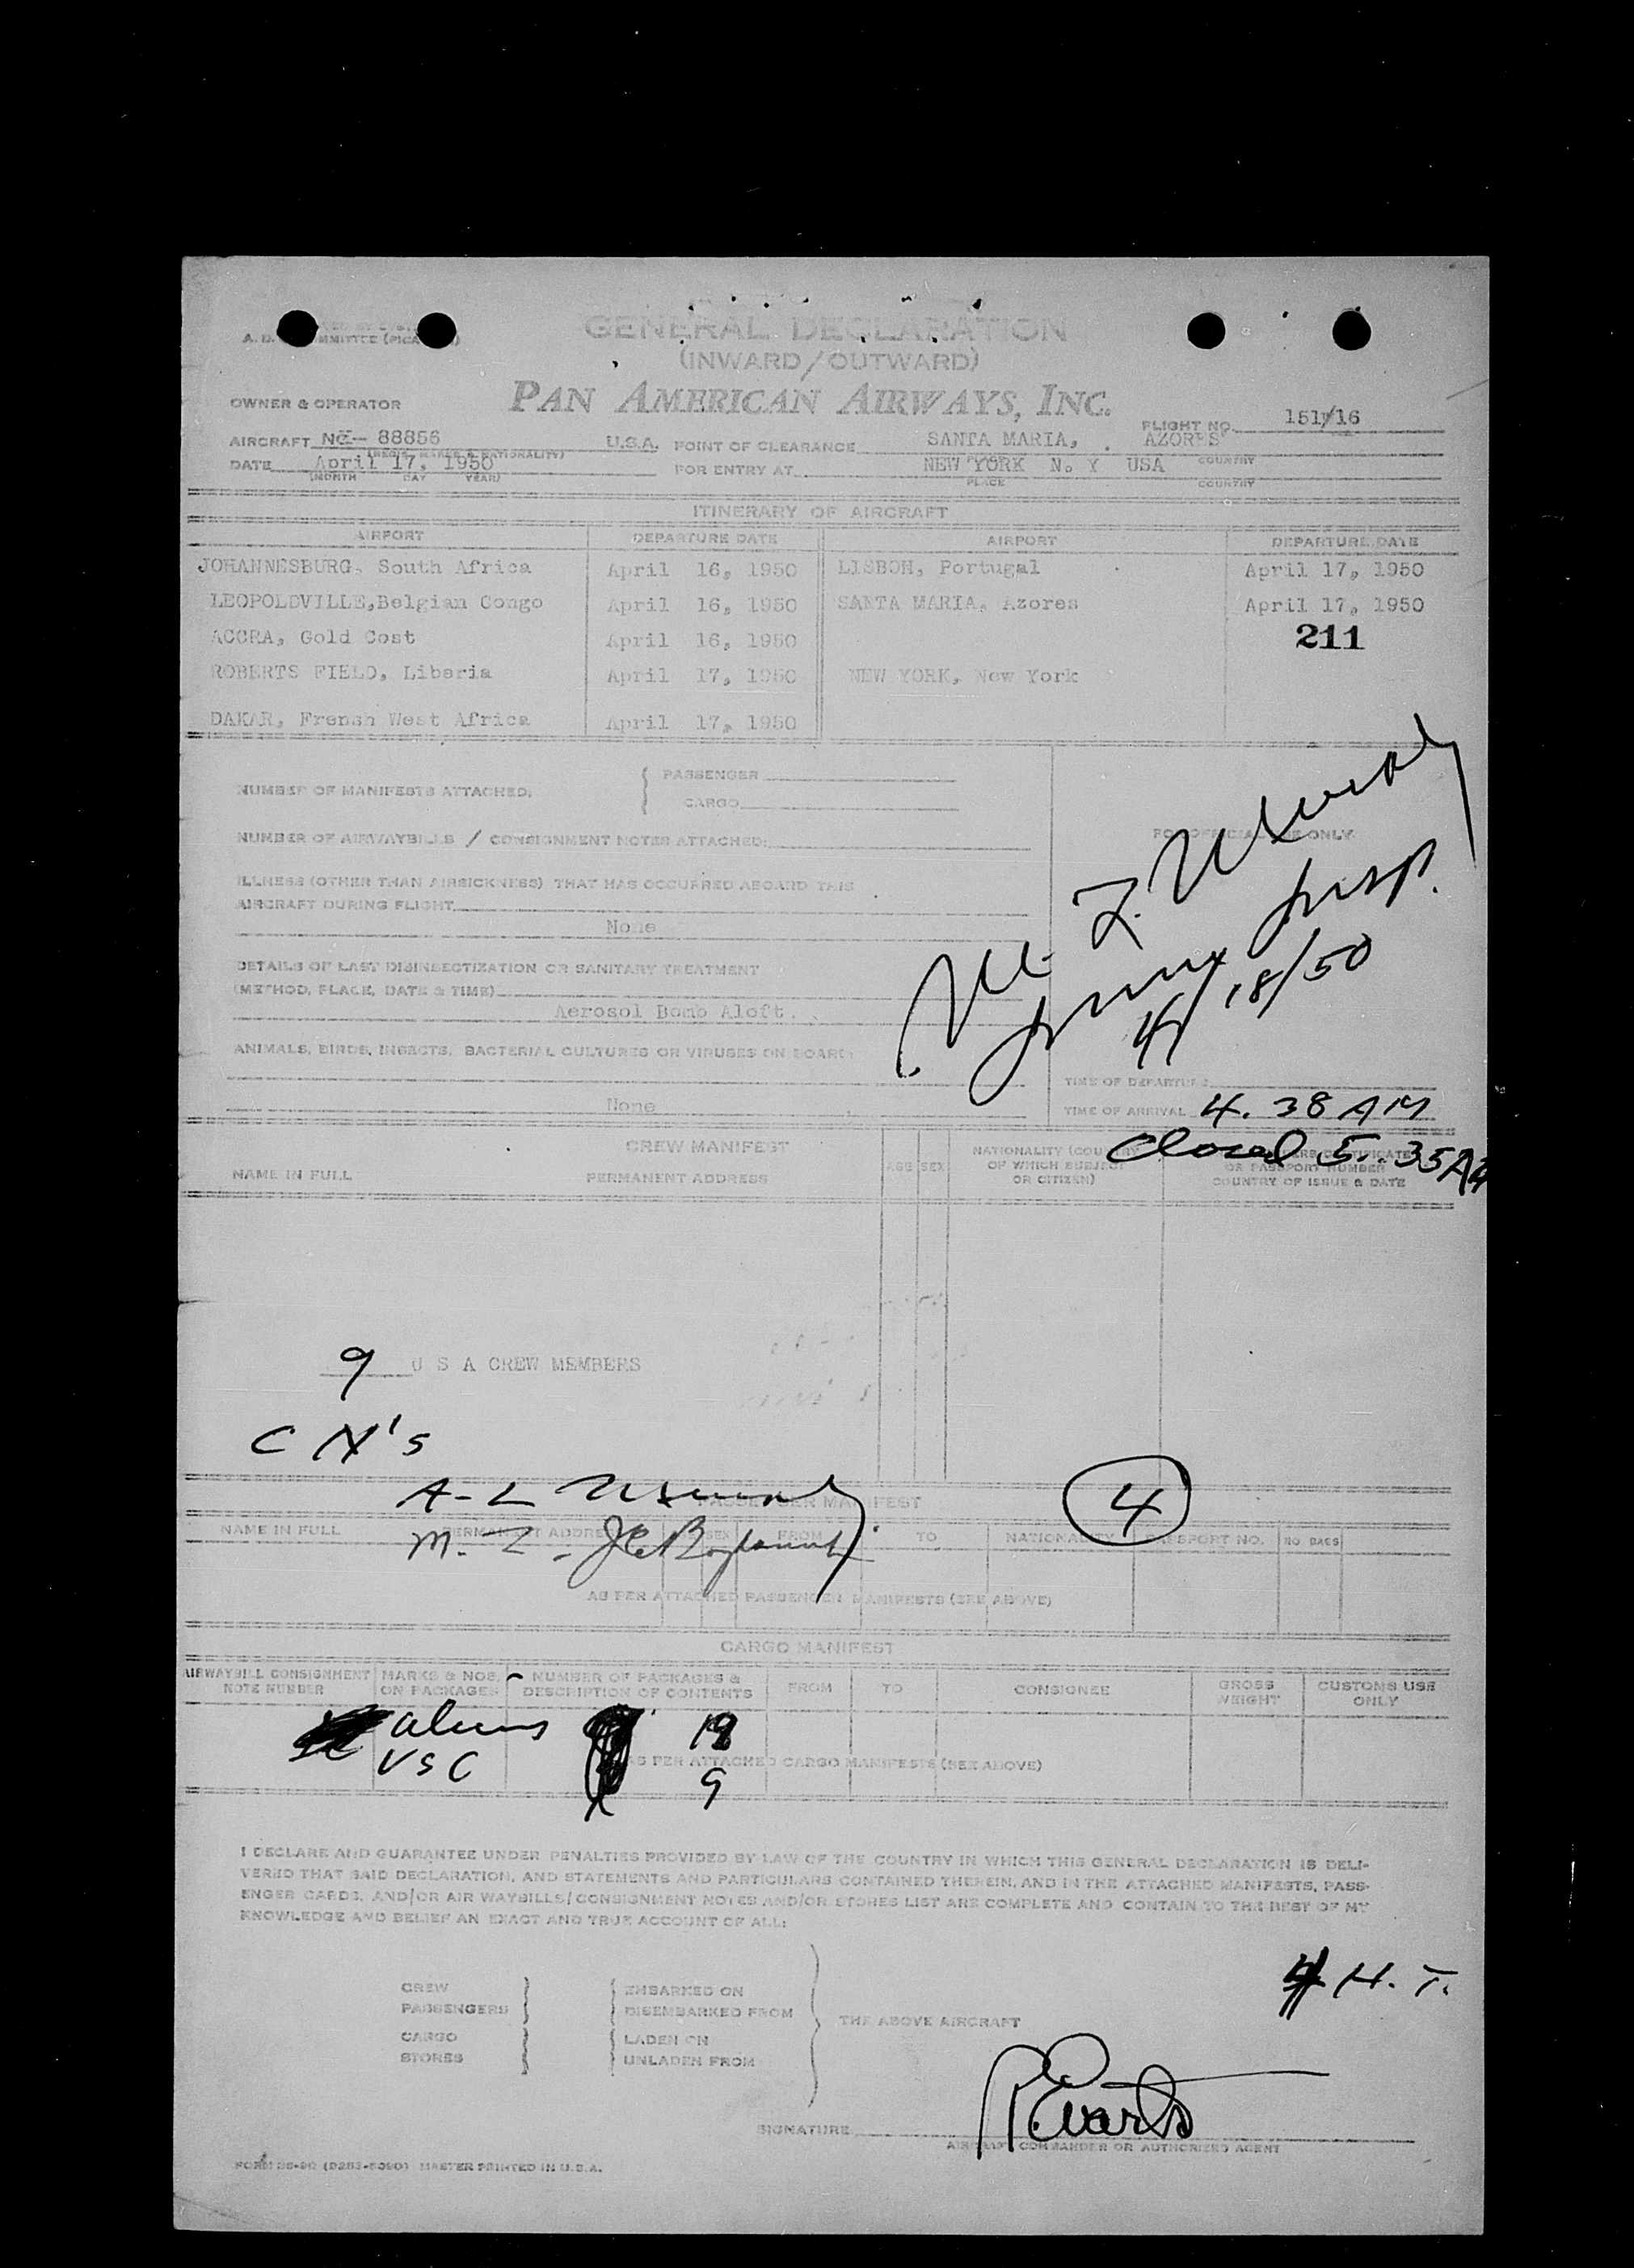 GENERAL DECLARATION
(INWARD/OUTWARD)
PAN AMERICAN AIRWAYS, INC.
OWNER & OPERATOR
FLIGHT NO. 151/16
AIRCRAFT NC-- 88856 U.S.A. POINT OF CLEARANCE SANTA MARIA, AZORES
(REGIS. MARKS & NATIONALITY) PLACE COUNTRY
DATE April 17, 1950 FOR ENTRY AT NEW YORK N. Y USA
(MONTH DAY YEAR) PLACE COUNTRY
ITINERARY OF AIRCRAFT
AIRPORT DEPARTURE DATE AIRPORT DEPARTURE DATE
JOHANNESBURG, South Africa April 16, 1950 LISBON, Portugal April 17, 1950
LEOPOLDVILLE, Belgian Congo April 16, 1950 SANTA MARIA, Azores April 17, 1950
ACCRA, Gold Cost April 16, 1950 211
ROBERTS FIELD, Liberia April 17, 1950 NEW YORK, New York
DAKAR, French West Africa April 17, 1950
NUMBER OF MANIFESTS ATTACHED: PASSENGER
CARGO
NUMBER OF AIRWAYBILLS / CONSIGNMENT NOTES ATTACHED:
FOR OFFICIAL USE ONLY
ILLNESS (OTHER THAN AIRSICKNESS) THAT HAS OCCURRED ABOARD THIS
AIRCRAFT DURING FLIGHT
None
DETAILS OF LAST DISINSECTIZATION OR SANITARY TREATMENT
(METHOD, PLACE, DATE & TIME)
Aerosol Bomb Aloft.
Insp.
4/18/50
ANIMALS, BIRDS, INSECTS, BACTERIAL CULTURES OR VIRUSES ON BOARD:
None
TIME OF DEPARTURE
TIME OF ARRIVAL 4.38 AM
Closed 5..35 AM
CREW MANIFEST
NAME IN FULL PERMANENT ADDRESS AGE SEX NATIONALITY (COUNTRY OF WHICH SUBJECT OR CITIZEN) CERTIFICATE OR PASSPORT NUMBER COUNTRY OF ISSUE & DATE
9 U S A CREW MEMBERS
C N's
A-L
M. Z -
4
PASSENGER MANIFEST
NAME IN FULL PERMANENT ADDRESS SEX FROM TO NATIONALITY PASSPORT NO. NO BAGS
AS PER ATTACHED PASSENGER MANIFESTS (SEE ABOVE)
CARGO MANIFEST
AIRWAYBILL CONSIGNMENT NOTE NUMBER MARKS & NOS. ON PACKAGES NUMBER OF PACKAGES & DESCRIPTION OF CONTENTS FROM TO CONSIGNEE GROSS WEIGHT CUSTOMS USE ONLY
aliens
VSC 9
AS PER ATTACHED CARGO MANIFESTS (SEE ABOVE)
I DECLARE AND GUARANTEE UNDER PENALTIES PROVIDED BY LAW OF THE COUNTRY IN WHICH THIS GENERAL DECLARATION IS DELI-
VERED THAT SAID DECLARATION, AND STATEMENTS AND PARTICULARS CONTAINED THEREIN, AND IN THE ATTACHED MANIFESTS, PASS-
ENGER CARDS, AND/OR AIR WAYBILLS/CONSIGNMENT NOTES AND/OR STORES LIST ARE COMPLETE AND CONTAIN TO THE BEST OF MY
KNOWLEDGE AND BELIEF AN EXACT AND TRUE ACCOUNT OF ALL:
H. T.
CREW EMBARKED ON
PASSENGERS DISEMBARKED FROM
THE ABOVE AIRCRAFT
CARGO LADEN ON
STORES UNLADEN FROM
SIGNATURE R Evarts
AIRCRAFT COMMANDER OR AUTHORIZED AGENT
MASTER PRINTED IN U.S.A.